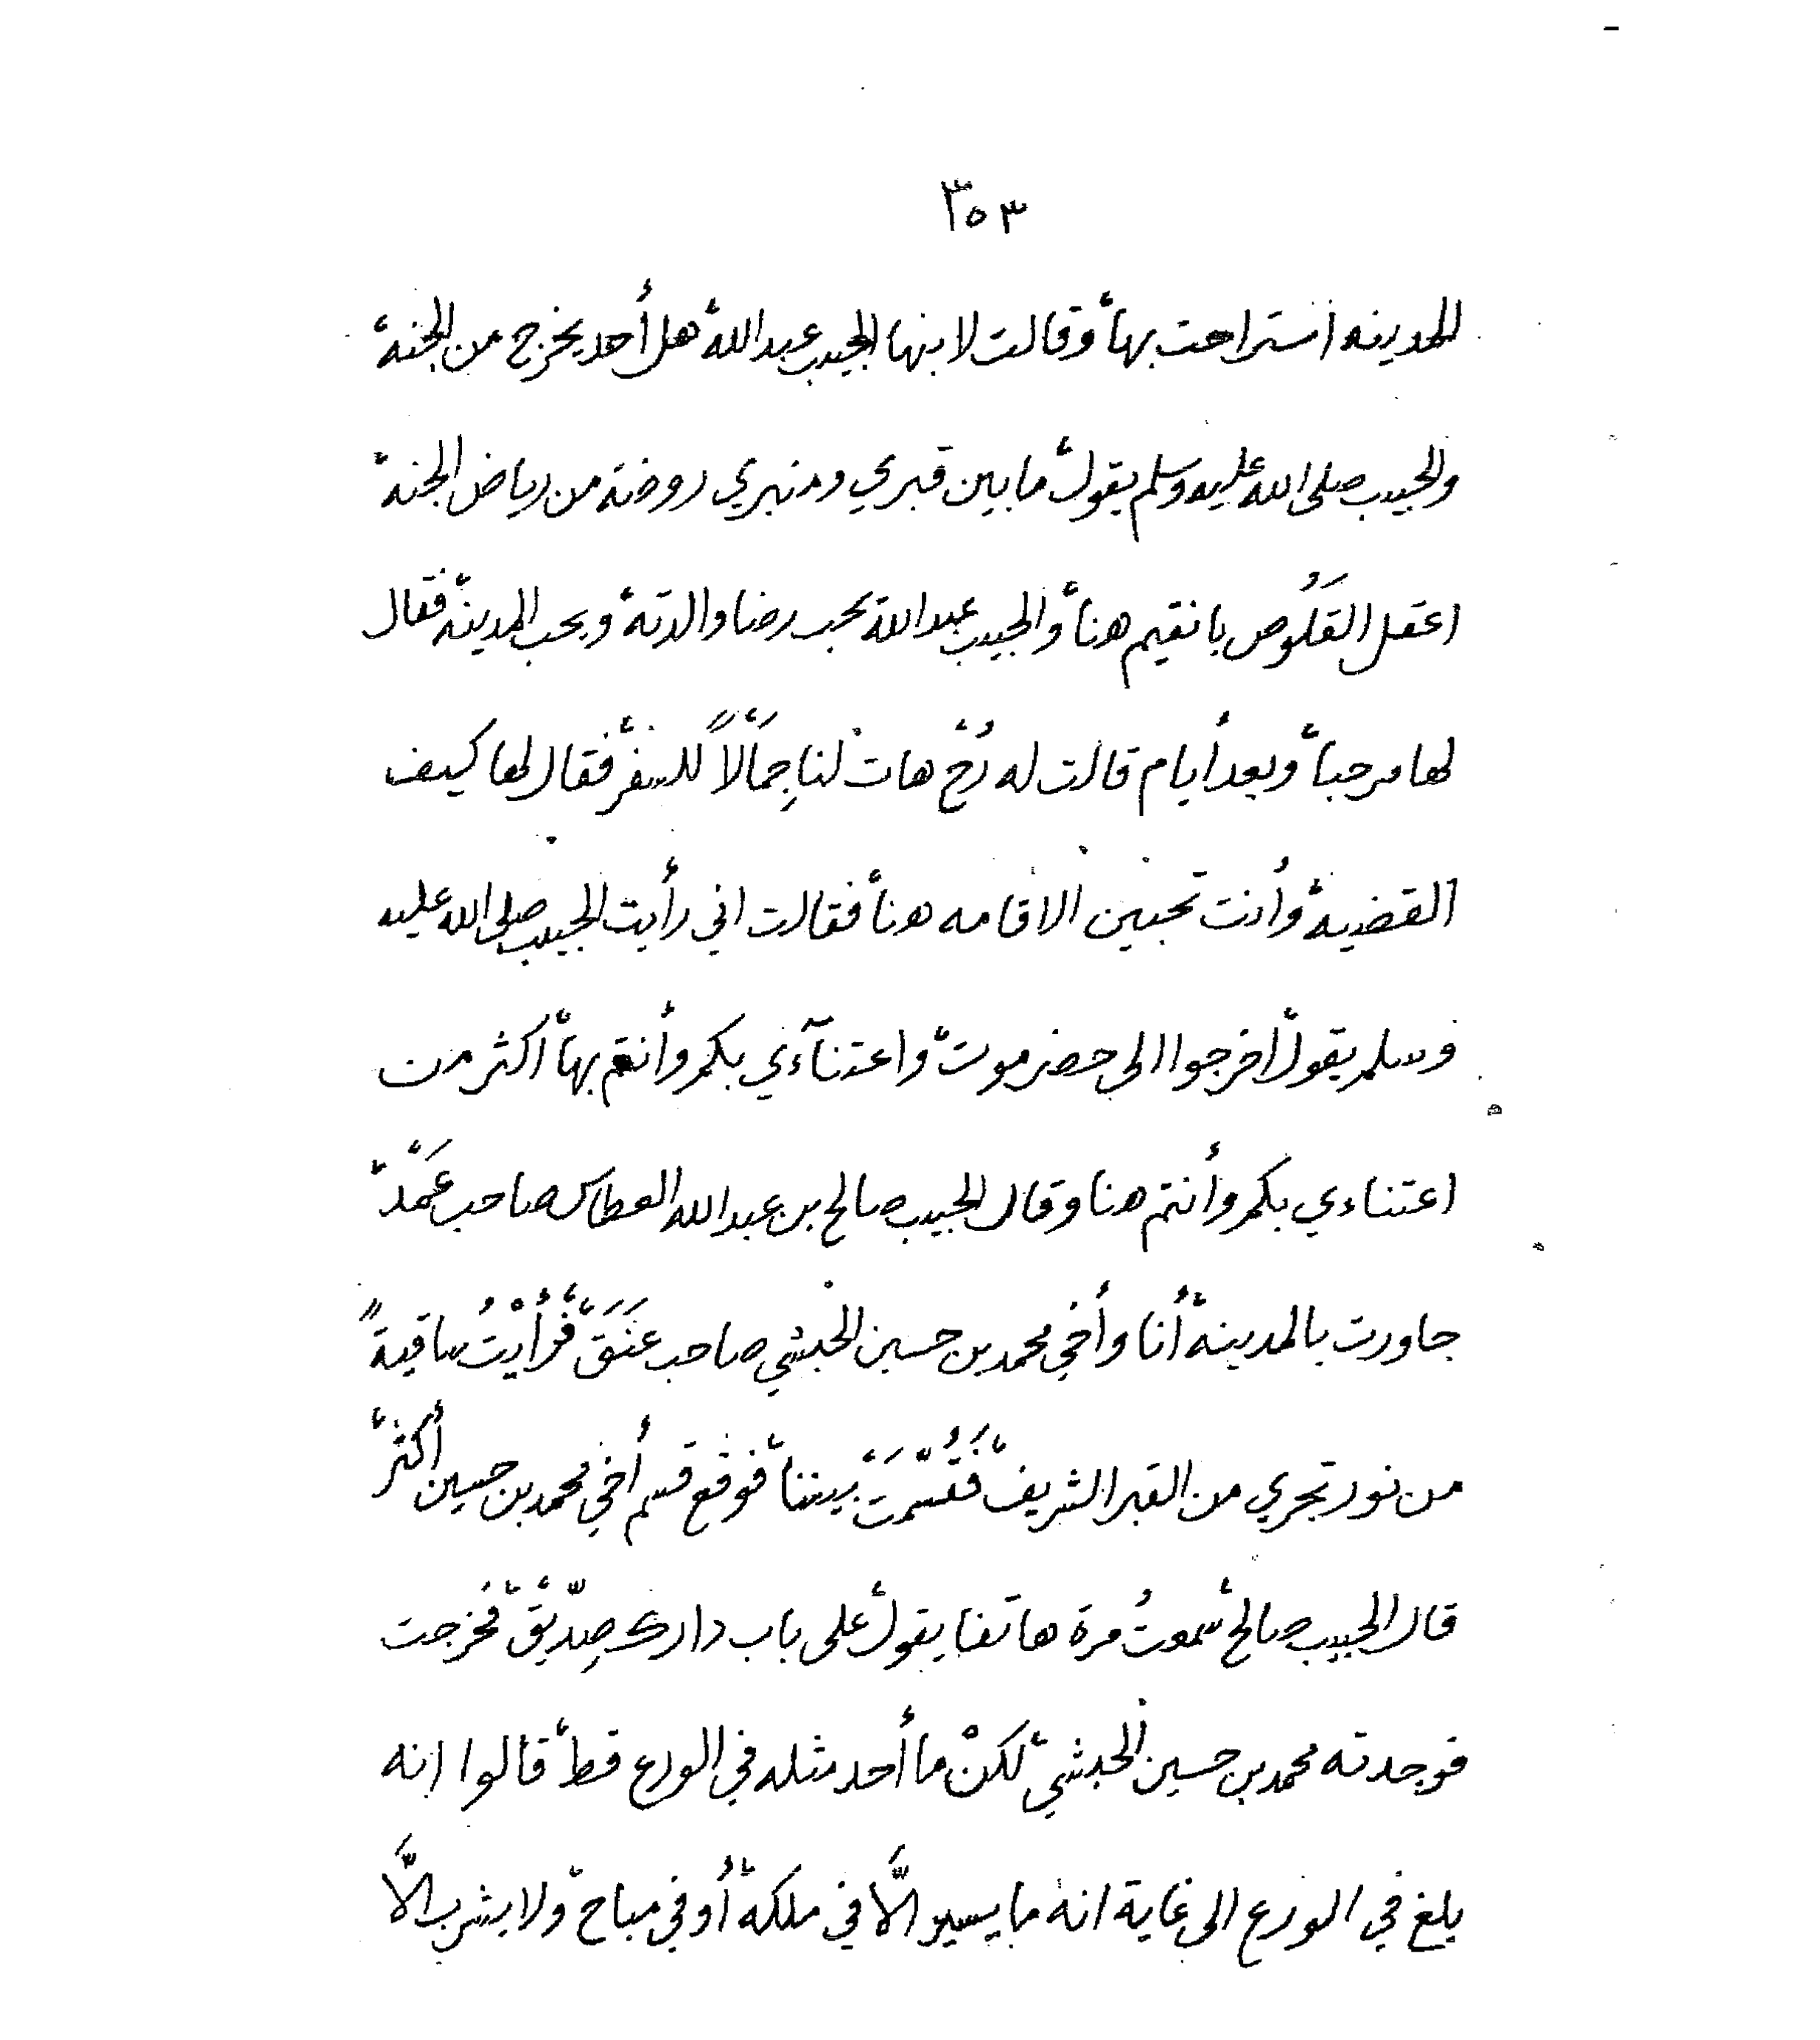 ٣٥٣
للمدينه استراحت بها، وقالت لابنها الحبيب عبدالله، هل أحد يخرج من الجنه،
والحبيب صلى الله عليه وسلم يقول، ما بين قبري ومنبري روضة من رياض الجنه،
اعقل القَلُوص با نقيم هنا، والحبيب عبدالله يحب رضا والدته، ويحب المدينه، فقال
لها مرحبا، وبعد أيام قالت له رُحْ هات لنا جِمَالاً للسفر، فقال لها كيف
القضيه، وأنت تحبين الاقامه هنا، فقالت اني رأيت الحبيب صلى الله عليه
وسلم يقول، اخرجوا الى حضرموت، واعتنآءي بكم وأنتم بها، أكثر من
اعتناءي بكم وأنتم هنا وقال الحبيب صالح بن عبدالله العطاس صاحب عَمْد،
جاورت بالمدينة، أنا وأخي محمد بن حسين الحبشي صاحب عَنَقْ، فرأيْتُ ساقيةً
من نور تجري من القبر الشريف، فَقُسِّمَتْ بيننا، فوقع قسم أخي محمد بن حسين أكثر،
قال الحبيب صالح، سمعتُ مرة هاتفا يقول، على باب دارك صِدِّيقْ، فخرجت
فوجدته محمد بن حسين الحبشي، لكنْ ما أحد مثله في الورع قط، قالوا إنه
بلغ في الورع الى غاية انه ما يسير الَّا في ملكه، أو في مباح، ولا يشرب الَّا